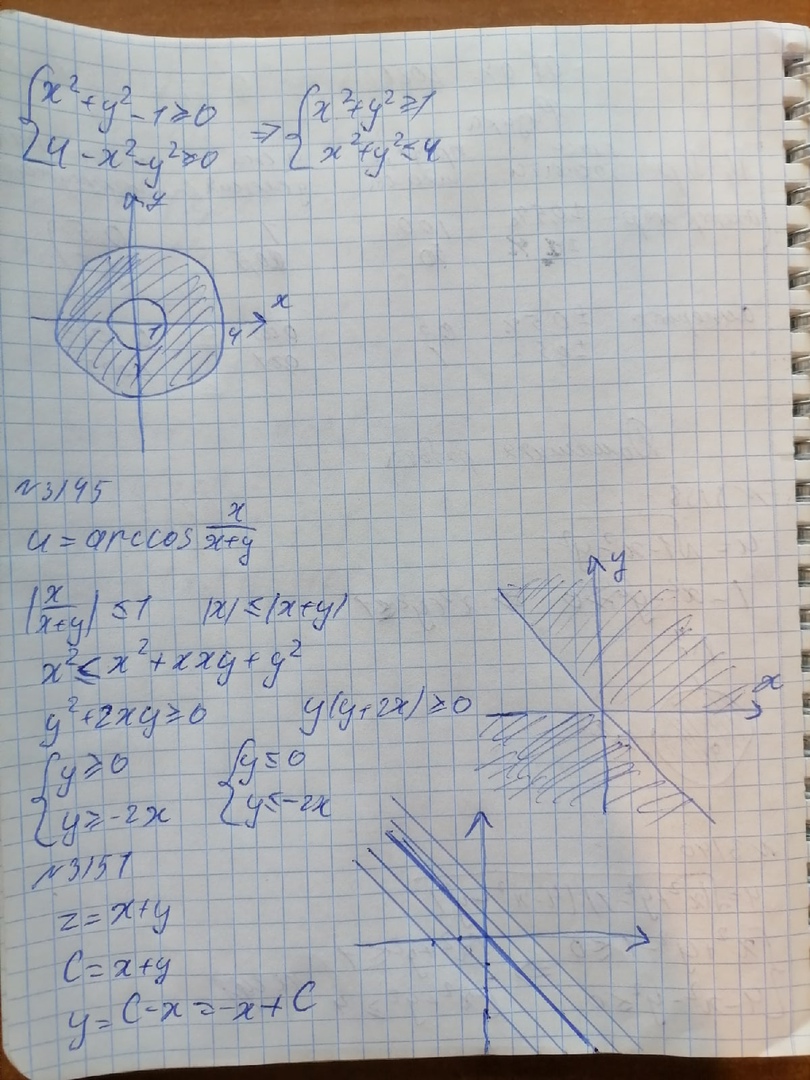 {x²+y²-1≥0 ⇒ {x²+y²≥1
{4-x²-y²≥0 {x²+y²≤4
y
x
1
4
N3145
u = arccos x/(x+y)
|x/(x+y)| ≤ 1 |x| ≤ |x+y|
x² ≤ x² + xxy + y²
y²+2xy≥0 y(y+2x)≥0
{y≥0 {y≤0
{y≥-2x {y≤-2x
y
x
N3151
z = x+y
C = x+y
y = C-x = -x+C